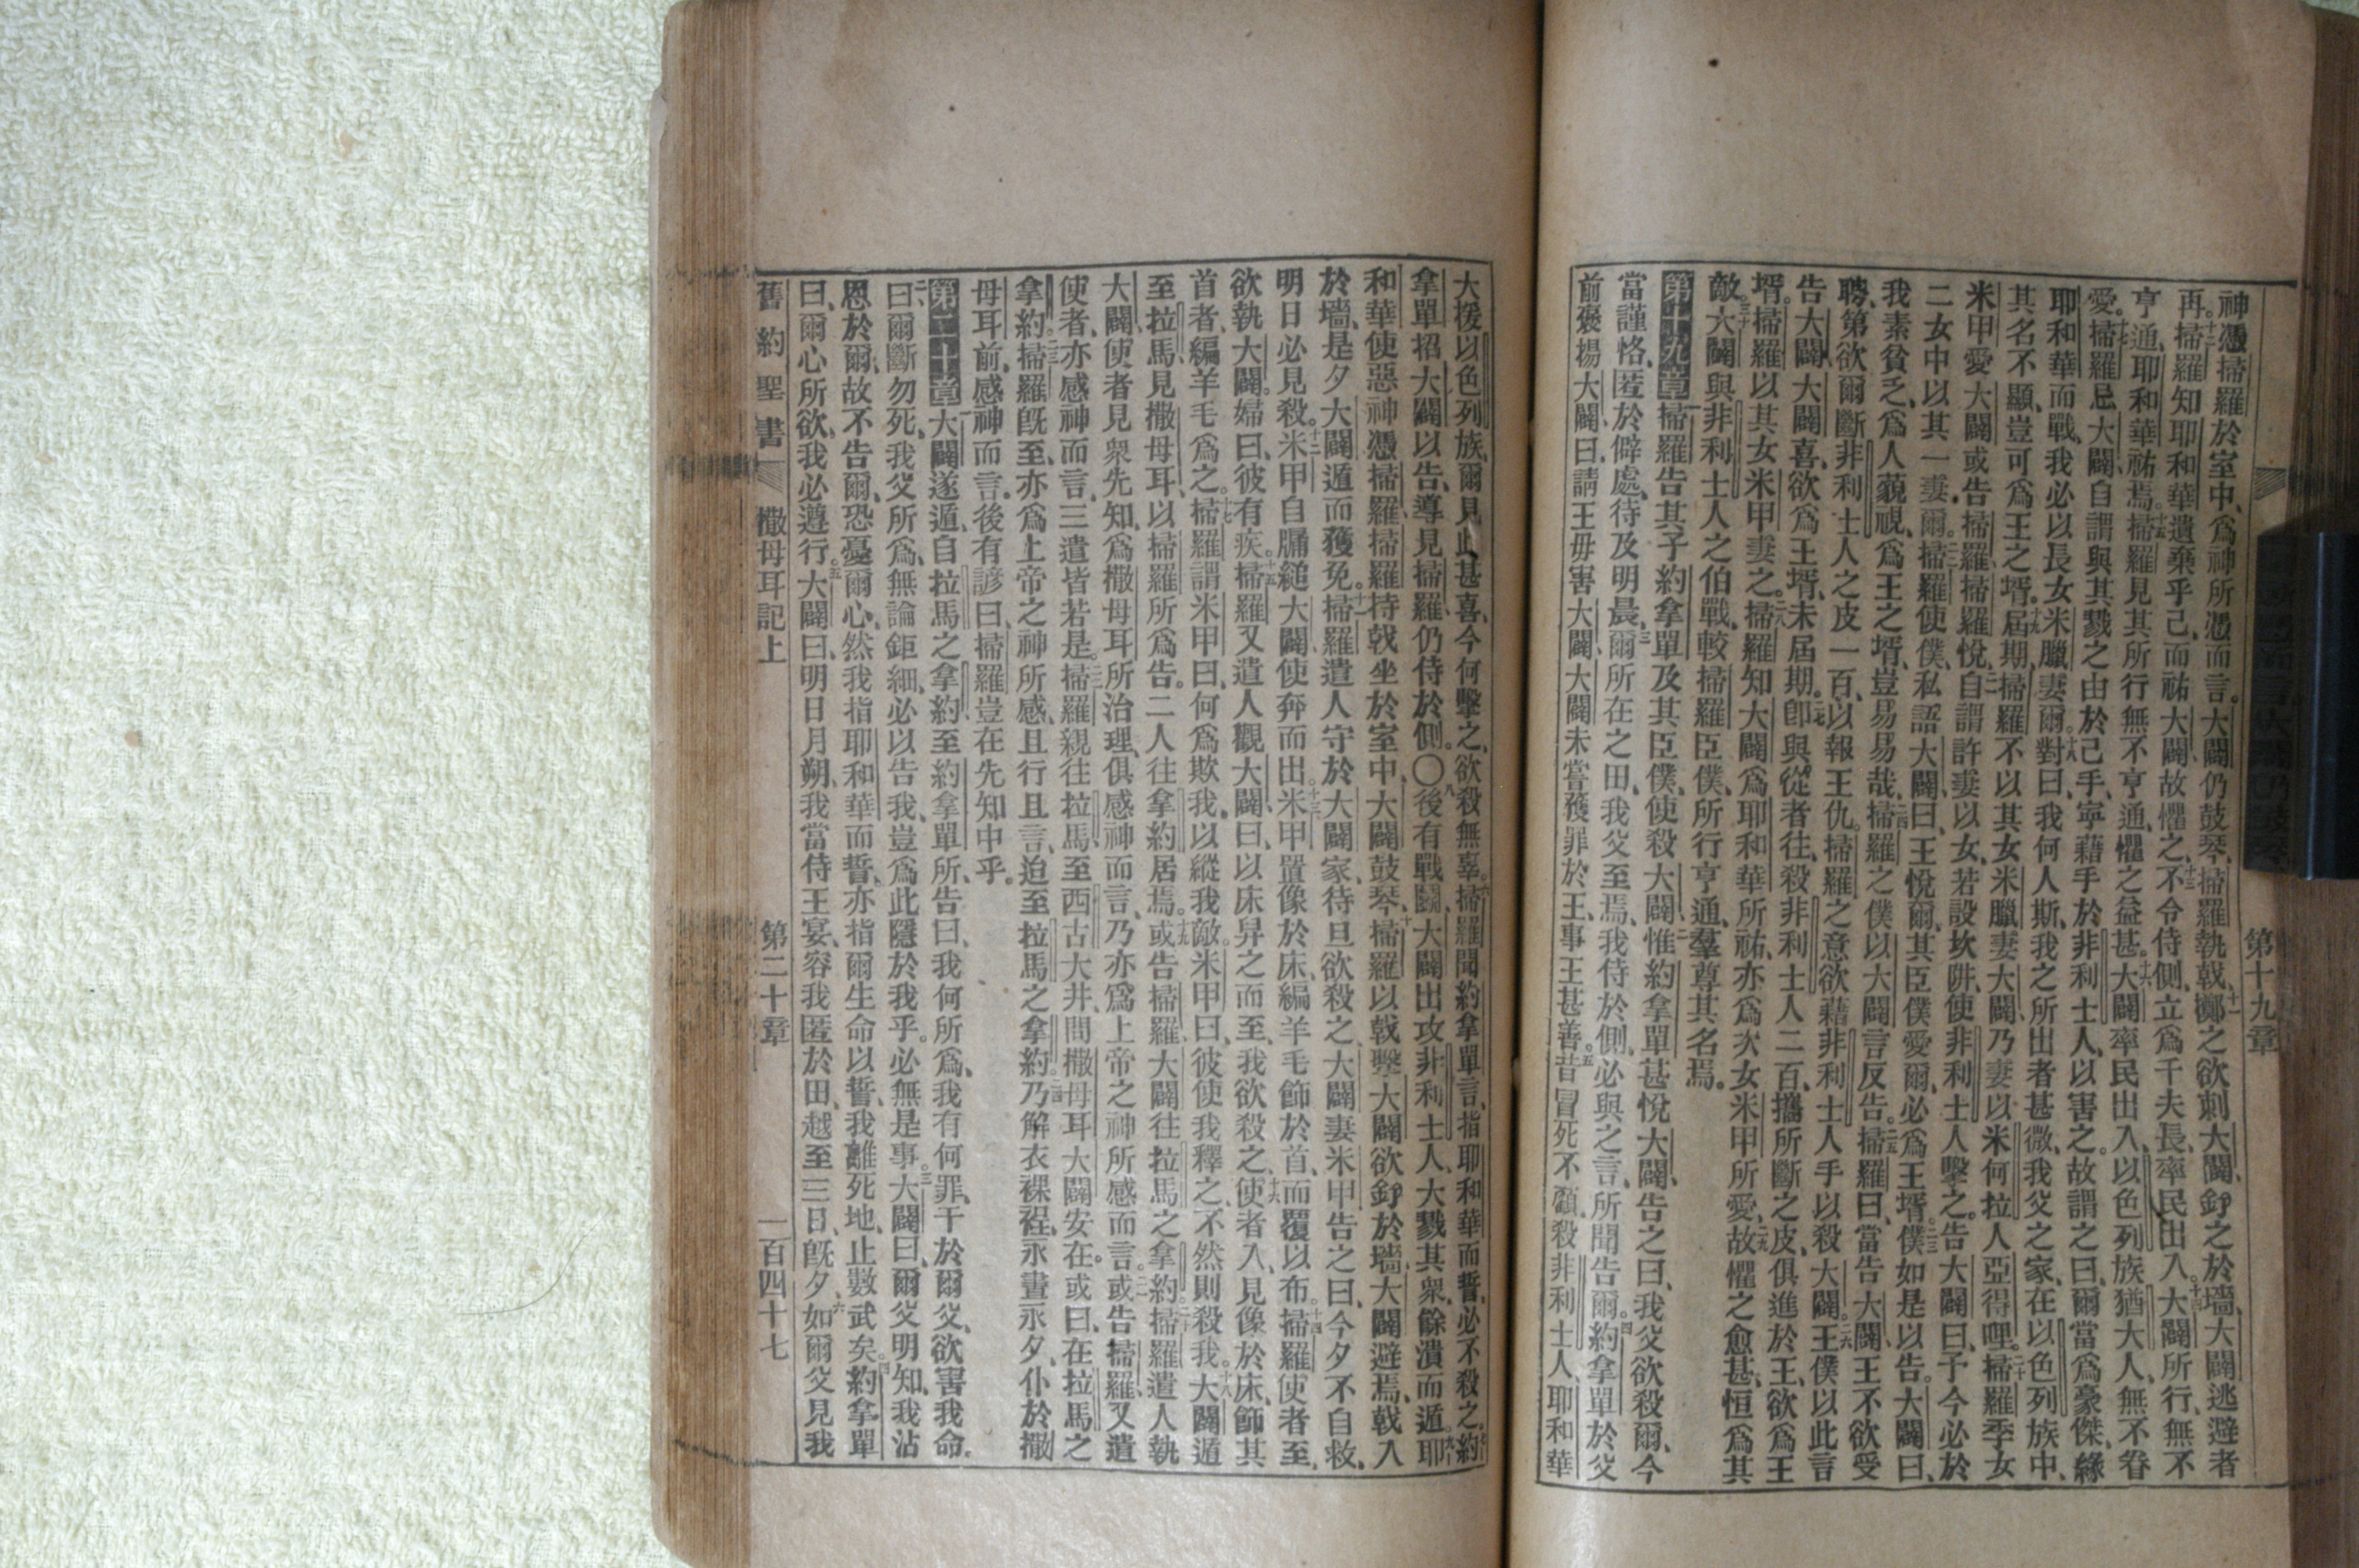 第十九章
神憑掃羅於室中、爲神所憑而言。大闢仍鼓琴、掃羅執戟、十一擲之欲刺大闢、釘之於墻、大闢逃避者
再。十二掃羅知耶和華遺棄乎己、而祐大闢、故懼之、十三不令侍側、立爲千夫長、率民出入。十四大闢所行、無不
亨通、耶和華祐焉。十五掃羅見其所行無不亨通、懼之益甚。十六大闢率民出入、以色列族猶大人、無不眷
愛。十七掃羅忌大闢、自謂與其戮之由於己手、寧藉手於非利士人、以害之。故謂之曰、爾當爲豪傑、緣
耶和華而戰、我必以長女米臘妻爾。十八對曰、我何人斯、我之所出者甚微、我父之家、在以色列族中、
其名不顯、豈可爲王之壻。十九屆期、掃羅不以其女米臘妻大闢、乃妻以米何拉人亞得哩。二十掃羅季女
米甲愛大闢、或告掃羅、掃羅悅、二一自謂許妻以女、若設坎阱、使非利士人擊之。告大闢曰、予今必於
二女中以其一妻爾。二二掃羅使僕、私語大闢、曰、王悅爾、其臣僕愛爾、必爲王壻。二三僕如是以告。大闢曰、
我素貧乏、爲人藐視、爲王之壻、豈易易哉。二四掃羅之僕以大闢言反告。二五掃羅曰、當告大闢、王不欲受
聘、第欲爾斷非利士人之皮一百、以報王仇。掃羅之意欲藉非利士人手以殺大闢。二六王僕以此言
告大闢、大闢喜、欲爲王壻、未屆期。二七卽與從者往、殺非利士人二百、攜所斷之皮、俱進於王、欲爲王
壻。掃羅以其女米甲妻之。二八掃羅知大闢爲耶和華所祐、亦爲次女米甲所愛、二九故懼之愈甚、恒爲其
敵。三十大闢與非利士人之伯戰、較掃羅臣僕、所行亨通、羣尊其名焉。
第十九章掃羅告其子約拿單、及其臣僕、使殺大闢、二惟約拿單甚悅大闢、告之曰、我父欲殺爾、今
當謹恪、匿於僻處、待及明晨、三爾所在之田、我父至焉、我侍於側、必與之言、所聞告爾。四約拿單於父
前褒揚大闢、曰、請王毋害大闢、大闢未嘗獲罪於王、事王甚善。五昔冒死不顧、殺非利士人、耶和華
大援以色列族、爾見此甚喜、今何擊之、欲殺無辜。六掃羅聞約拿單言、指耶和華而誓、必不殺之。七約
拿單招大闢以告、導見掃羅、仍侍於側。〇八後有戰鬬、大闢出攻非利士人、大戮其衆、餘潰而遁。九耶
和華使惡神憑掃羅、掃羅持戟坐於室中、大闢鼓琴、十掃羅以戟擊大闢、欲釘於墻、大闢避焉、戟入
於墻、是夕大闢遁而獲免。十一掃羅遣人守於大闢家、待旦欲殺之、大闢妻米甲告之曰、今夕不自救、
明日必見殺。十二米甲自牖縋大闢、使奔而出。十三米甲置像於床、編羊毛飾於首、而覆以布。十四掃羅使者至、
欲執大闢。婦曰、彼有疾。十五掃羅又遣人觀大闢、曰、以床舁之而至、我欲殺之、十六使者入、見像於床、飾其
首者、編羊毛爲之。十七掃羅謂米甲曰、何爲欺我、以縱我敵。米甲曰、彼使我釋之、不然則殺我。十八大闢遁
至拉馬、見撒母耳、以掃羅所爲告。二人往拿約居焉。十九或告掃羅、大闢往拉馬之拿約。二十掃羅遣人執
大闢、使者見衆先知、爲撒母耳所治理、俱感神而言、乃亦爲上帝之神所感而言。二一或告掃羅、又遣
使者、亦感神而言、三遣皆若是。二二掃羅親往拉馬、至西古大井、問撒母耳大闢安在。或曰、在拉馬之
拿約。二三掃羅旣至、亦爲上帝之神所感、且行且言、迨至拉馬之拿約。二四乃解衣裸裎、永晝永夕、仆於撒
母耳前、感神而言。後有諺曰、掃羅豈在先知中乎。
第二十章大闢遂遁、自拉馬之拿約、至約拿單所、告曰、我何所爲、我有何罪、干於爾父、欲害我命。
二曰、爾斷勿死、我父所爲、無論鉅細、必以告我、豈爲此隱於我乎。必無是事。三大闢曰、爾父明知、我沾
恩於爾、故不告爾、恐憂爾心、然我指耶和華而誓、亦指爾生命以誓、我離死地、止數武矣。四約拿單
曰、爾心所欲、我必遵行。五大闢曰、明日月朔、我當侍王宴、容我匿於田、越至三日、旣夕、六如爾父見我
舊約聖書 撒母耳記上 第二十章 一百四十七